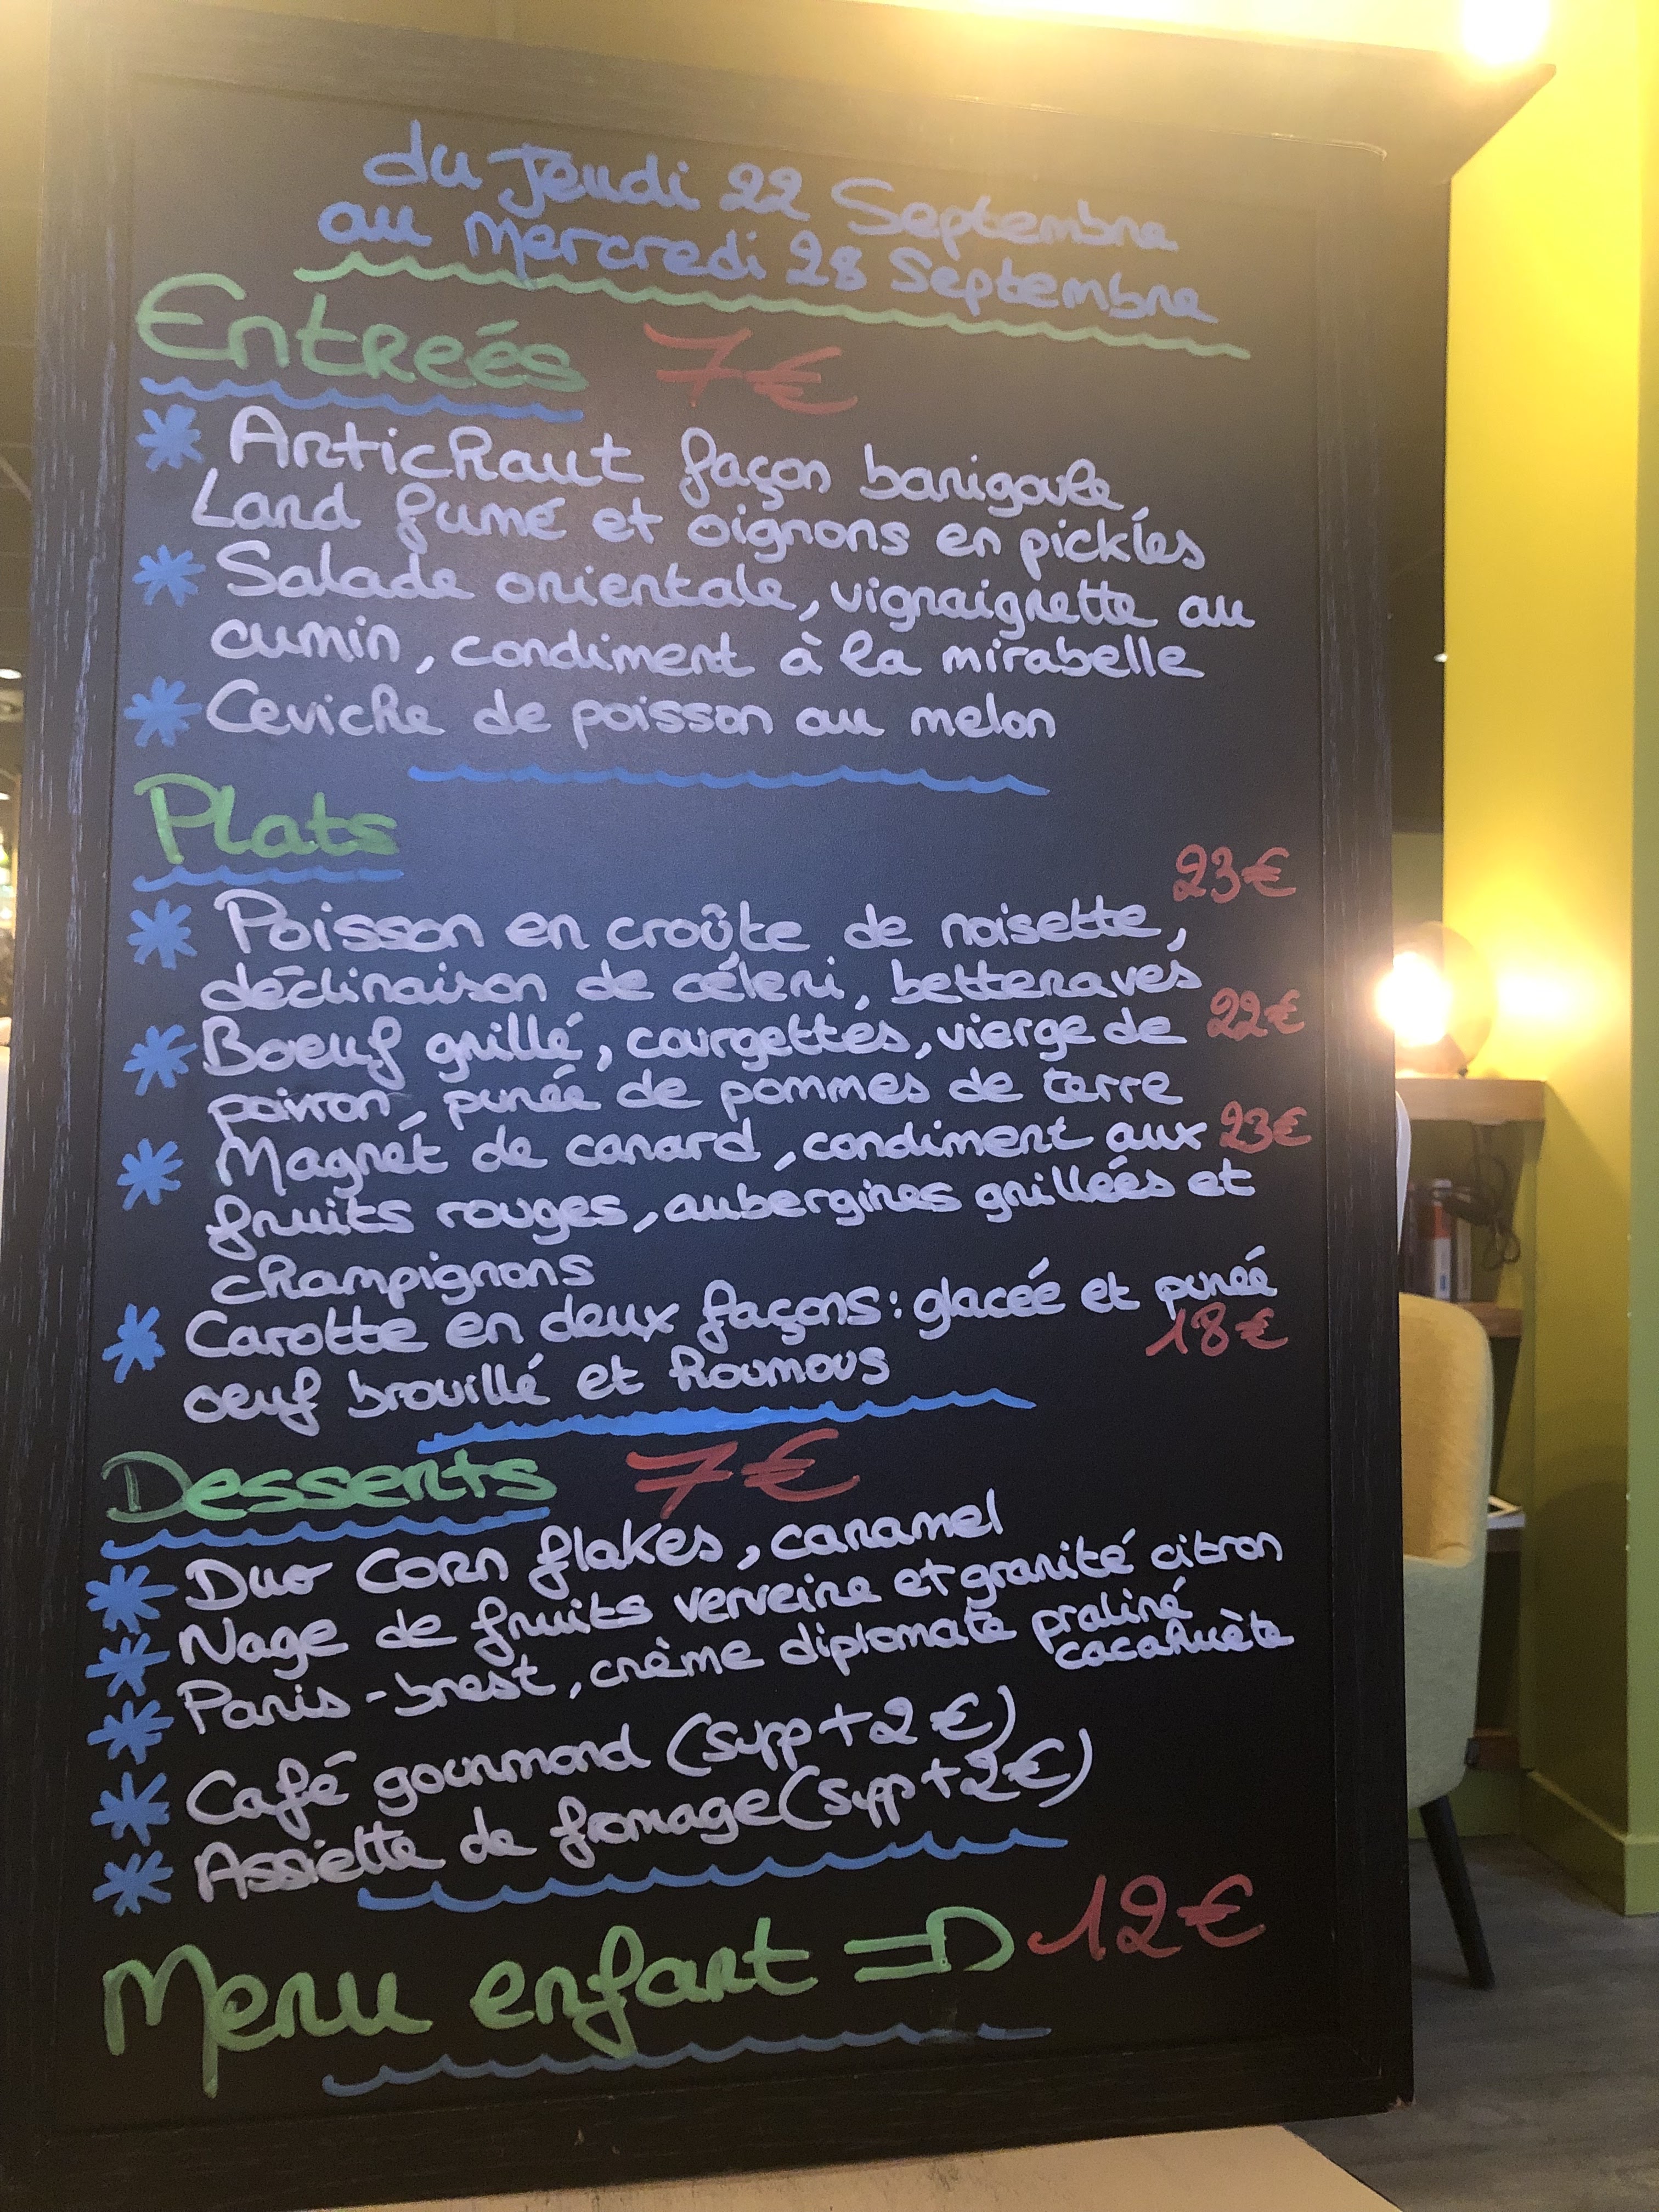 du Jeudi 22 Septembre
au Mercredi 28 Septembre
Entreés 7€
* Artichaut façon barigoule
Lard fumé et oignons en pickles
* Salade orientale, vignaigrette au
cumin, condiment à la mirabelle
* Ceviche de poisson au melon
Plats
23€
* Poisson en croûte de noisette,
déclinaison de céleri, betteraves
* Boeuf grillé, courgettes, vierge de 22€
poivron, purée de pommes de terre
* Magrét de canard, condiment aux 23€
fruits rouges, aubergines grilleés et
champignons
* Carotte en deux façons: glacée et purée
18€
oeuf brouillé et houmous
Desserts 7€
* Duo Corn flakes, caramel
* Nage de fruits verveine et granité citron
* Paris-brest, crème diplomate praliné
cacahuète
* Café gourmand (supp+2€)
* Assiette de fromage (supp+2€)
Menu enfant => 12€